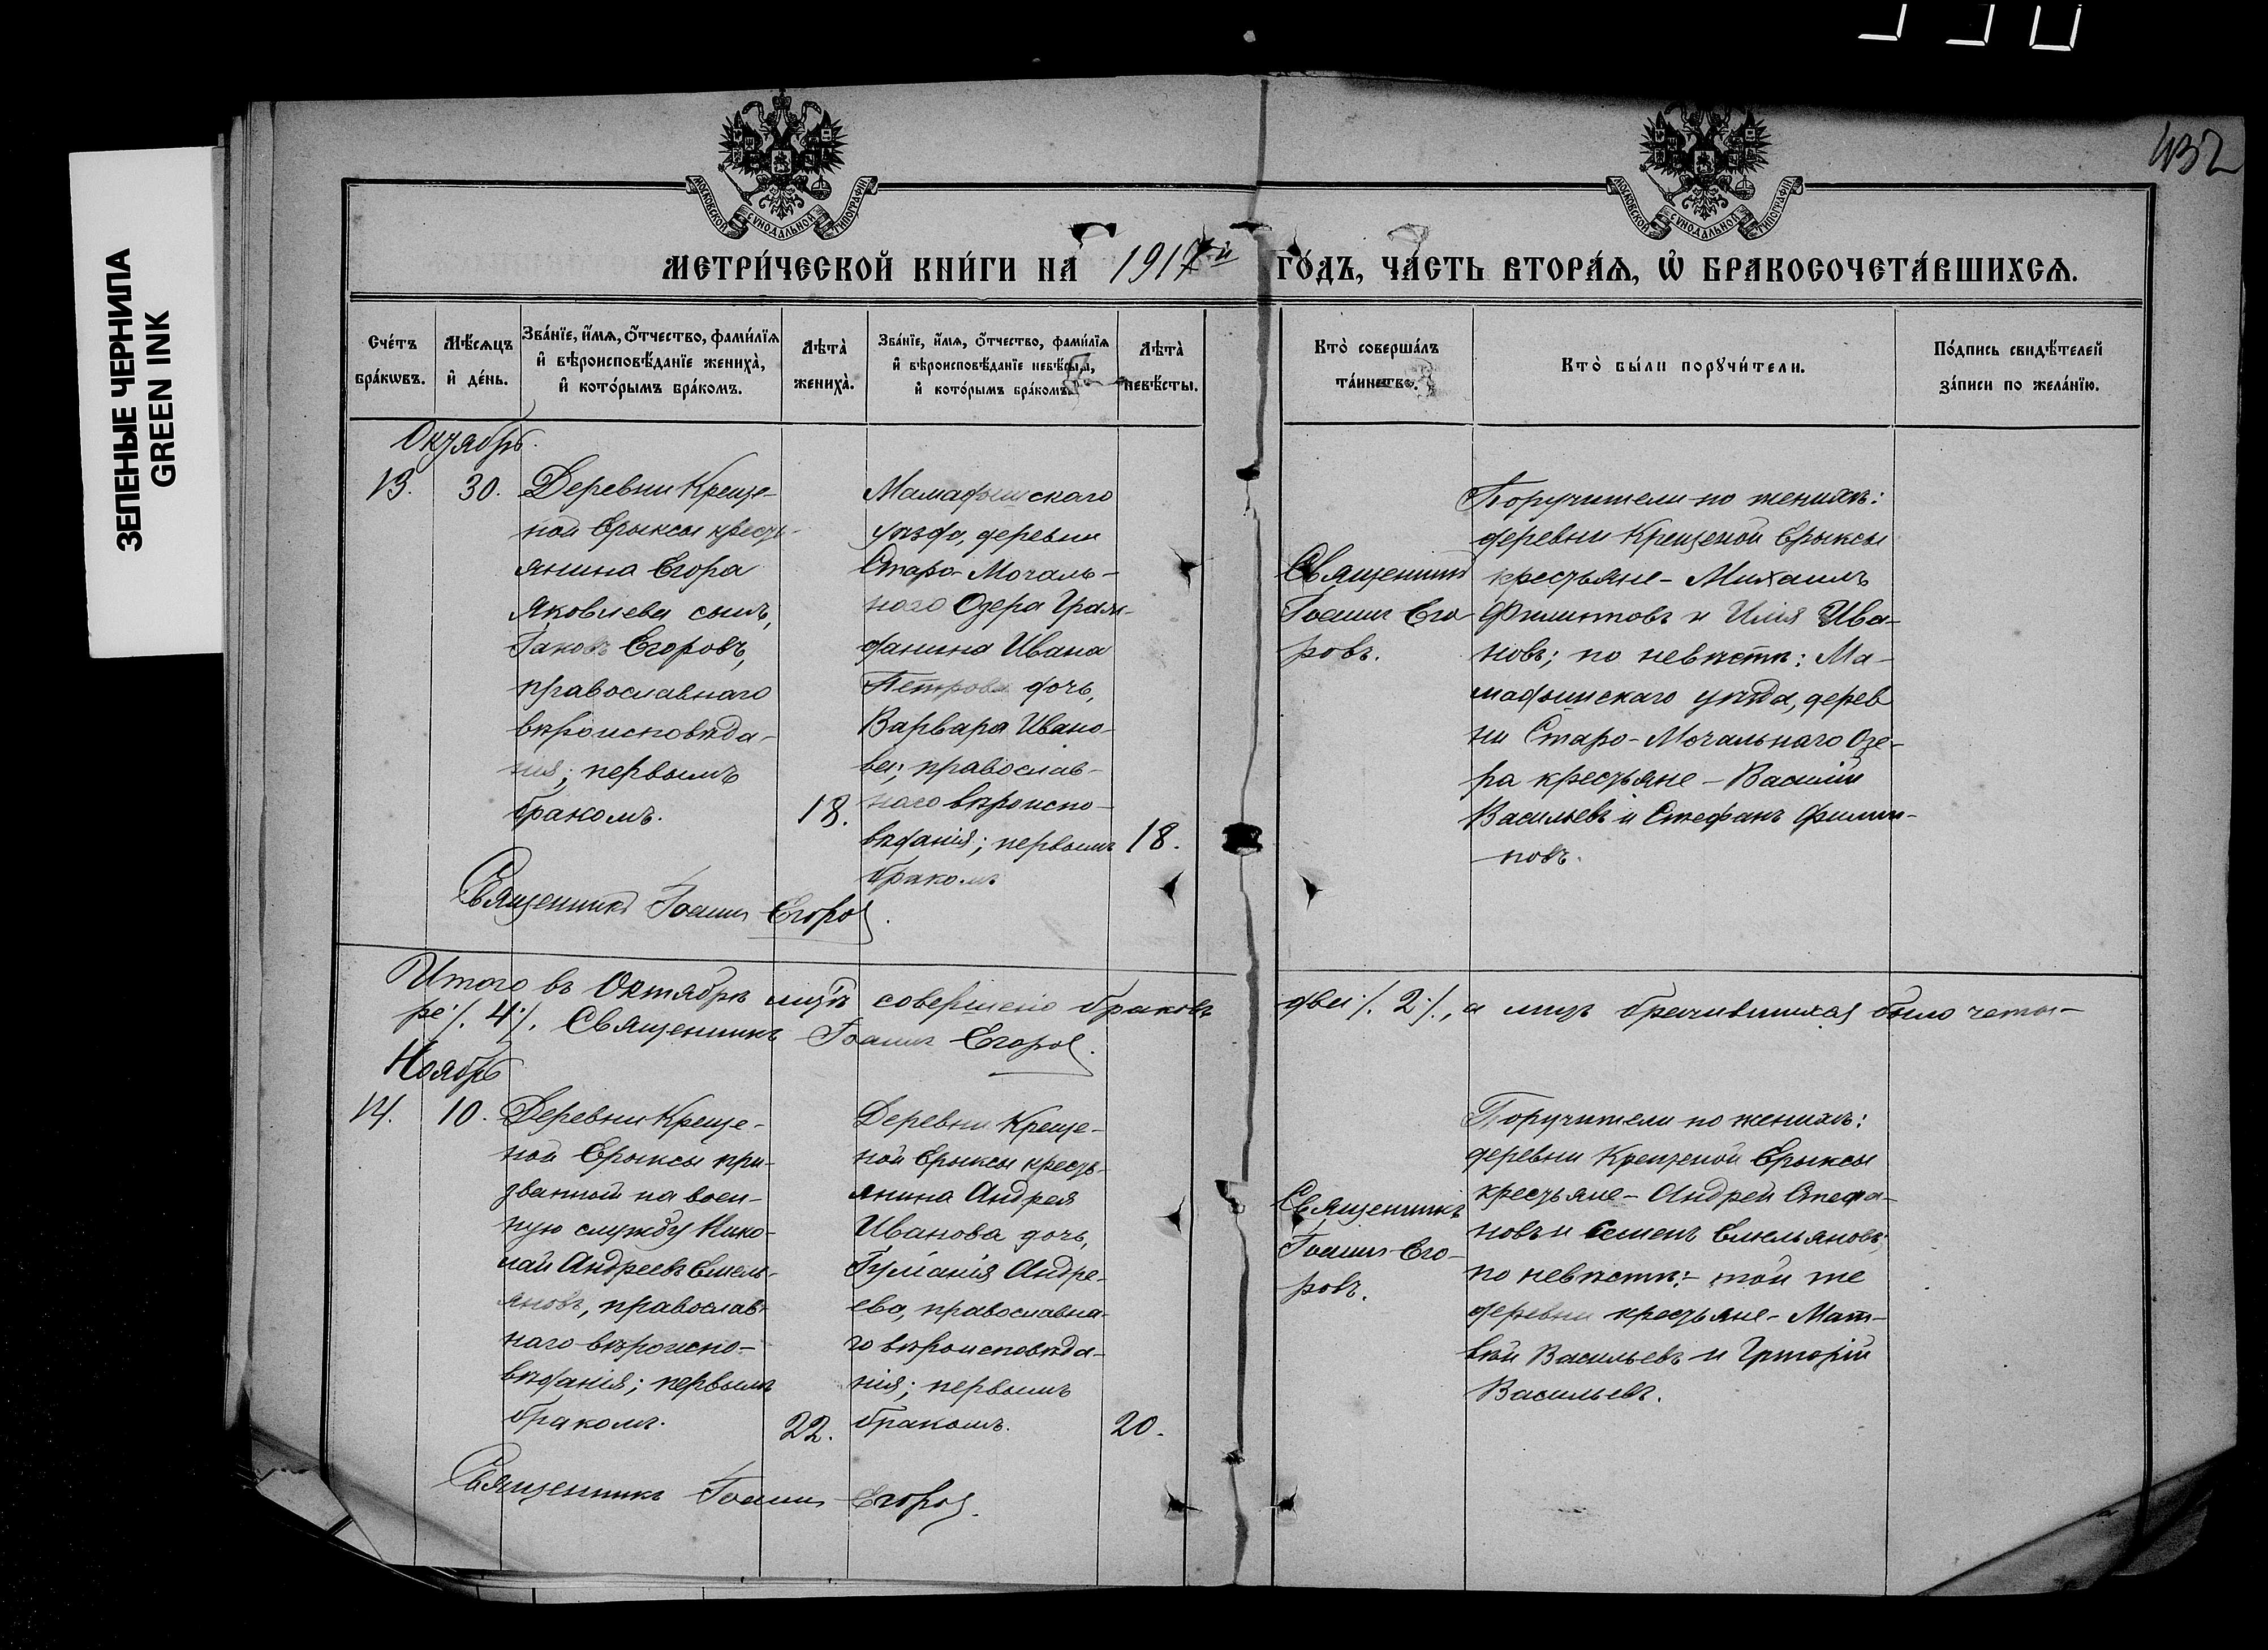 ЗЕЛЕНЫЕ ЧЕРНИЛА
GREEN INK
432
МОСКОВСКОЙ СѴНОДАЛЬНОЙ ТИПОГРАФІИ
МОСКОВСКОЙ СѴНОДАЛЬНОЙ ТИПОГРАФІИ
МЕТРИ́ЧЕСКОЙ КНИ́ГИ НА 1917й ГО́ДЪ, ЧА́СТЬ ВТОРА́Ѧ, Ѡ҆ БРАКОСОЧЕТА́ВШИХСѦ.
Сче́тъ
бра́кѡвъ.
Мѣ́сѧцъ
и҆ де́нь.
Зва́нїе, и҆́мѧ, ѻ҆́тчество, фами́лїѧ
и҆ вѣроисповѣ́данїе жениха̀,
и҆ кото́рымъ бра́комъ.
Лѣта̀
жениха̀.
Зва́нїе, и҆́мѧ, ѻ҆́тчество, фами́лїѧ
и҆ вѣроисповѣ́данїе невѣ́сты,
и҆ кото́рымъ бра́комъ.
Лѣта̀
невѣ́сты.
Кто̀ соверша́лъ
та́инство.
Кто̀ бы́ли порꙋчи́тели.
По́дпись свидѣ́телей
за́писи по жела́нїю.
Октябрь.
13.
30.
Деревни Креще-
ной Ерыксы кресть-
янина Егора
Яковлева сынъ,
Іаковъ Егоровъ,
православнаго
вѣроисповѣда-
нія; первымъ
бракомъ.
18.
Мамадышскаго
уѣзда, деревни
Старо-Мочаль-
наго Озера Граж-
данина Ивана
Петрова дочь,
Варвара Ивано-
ва; православ-
наго вѣроиспо-
вѣданія; первымъ
бракомъ
18.
Священникъ
Іоаннъ Его-
ровъ.
Поручители по женихѣ:
деревни Крещеной Ерыксы
крестьяне - Михаилъ
Филипповъ и Илія Ива-
новъ; по невѣстѣ: Ма-
мадышскаго уѣзда, дерев
ни Старо-Мочальнаго Озе-
ра крестьяне - Василій
Васильевъ и Стефанъ Филип-
повъ.
Священникъ Іоаннъ Егоровъ.
Итого въ Октябрѣ мцѣ совершено браковъ два ·/. 2 ·/., а лицъ брачившихся было четы-
ре ·/. 4 ·/. Священникъ Іоаннъ Егоровъ.
Ноябрь
14.
10.
Деревни Креще-
ной Ерыксы при-
званный на воен-
ную службу Нико-
лай Андреевъ Емель-
яновъ, православ-
наго вѣроиспо-
вѣданія; первымъ
бракомъ.
22.
Деревни Креще-
ной Ерыксы кресть-
янина Андрея
Иванова дочь,
Іуліанія Андре-
ева, православна-
го вѣроисповѣда-
нія; первымъ
бракомъ.
20.
Священникъ
Іоаннъ Его-
ровъ.
Поручители по женихѣ:
деревни Крещеной Ерыксы
крестьяне - Андрей Стефа-
новъ и Семенъ Емельяновъ;
по невѣстѣ: - той же
деревни крестьяне - Мат-
вѣй Васильевъ и Григорій
Васильевъ.
Священникъ Іоаннъ Егоровъ.